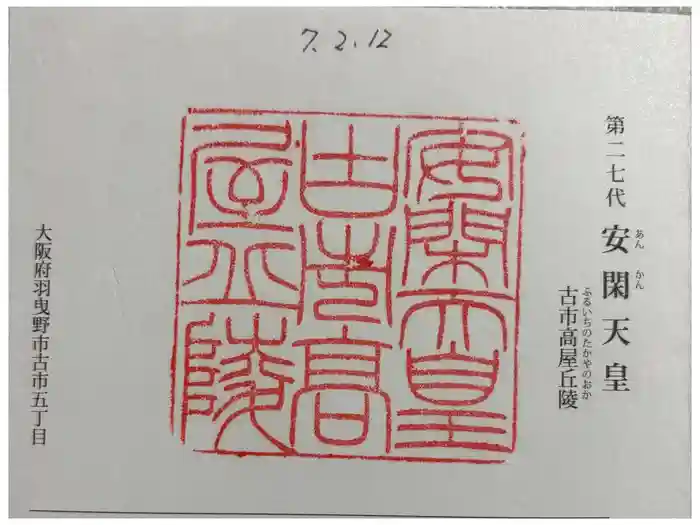 7.2.12
第二七代 安閑天皇
あんかん
古市高屋丘陵
ふるいちのたかやのおか
安閑天皇
古市高
屋丘陵
大阪府羽曳野市古市五丁目